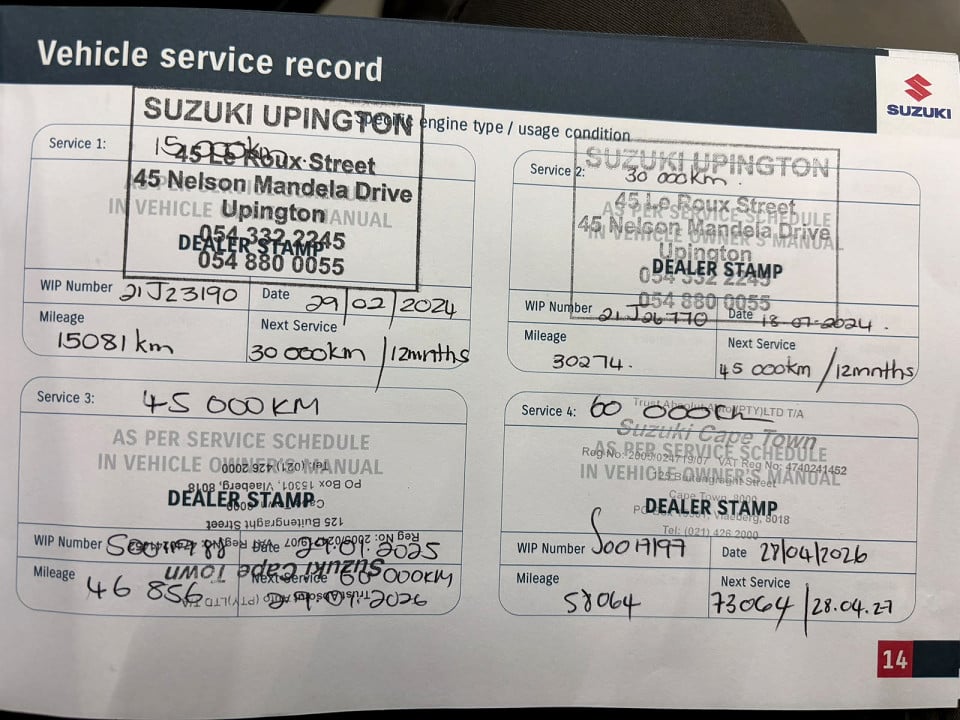 Vehicle service record
SUZUKI
Specific engine type / usage condition
Service 1: 15 000km
SUZUKI UPINGTON
45 Le Roux Street
45 Nelson Mandela Drive
Upington
054 332 2245
054 880 0055
AS PER SERVICE SCHEDULE
IN VEHICLE OWNER'S MANUAL
DEALER STAMP
WIP Number 21J23190 Date 29/02/2024
Mileage 15081 km
Next Service 30 000km /12mnths
Service 2: 30 000km.
SUZUKI UPINGTON
45 Le Roux Street
45 Nelson Mandela Drive
Upington
054 332 2245
054 880 0055
AS PER SERVICE SCHEDULE
IN VEHICLE OWNER'S MANUAL
DEALER STAMP
WIP Number 21J26770 Date 18-07-2024.
Mileage 30274.
Next Service 45 000km /12mnths
Service 3: 45 000KM
AS PER SERVICE SCHEDULE
IN VEHICLE OWNER'S MANUAL
DEALER STAMP
Trust Absolut Auto (PTY)LTD T/A
Suzuki Cape Town
Reg No: 2009/024719/07 VAT Reg No:
125 Buitengraght Street
Cape Town, 8000
PO Box 15301, Vlaeberg, 8018
Tel: (021) 426 2000
WIP Number Date 29.01.2025
Mileage 46 856
Next Service 60 000KM
29.01.2026
Service 4: 60 000
Trust Absolut Auto (PTY)LTD T/A
Suzuki Cape Town
Reg No: 2009/024719/07 VAT Reg No: 4740241452
125 Buitengraght Street
Cape Town, 8000
PO Box 15301, Vlaeberg, 8018
Tel: (021) 426 2000
AS PER SERVICE SCHEDULE
IN VEHICLE OWNER'S MANUAL
DEALER STAMP
WIP Number S0017197 Date 28/04/2026
Mileage 58064
Next Service 73064 /28.04.27
14